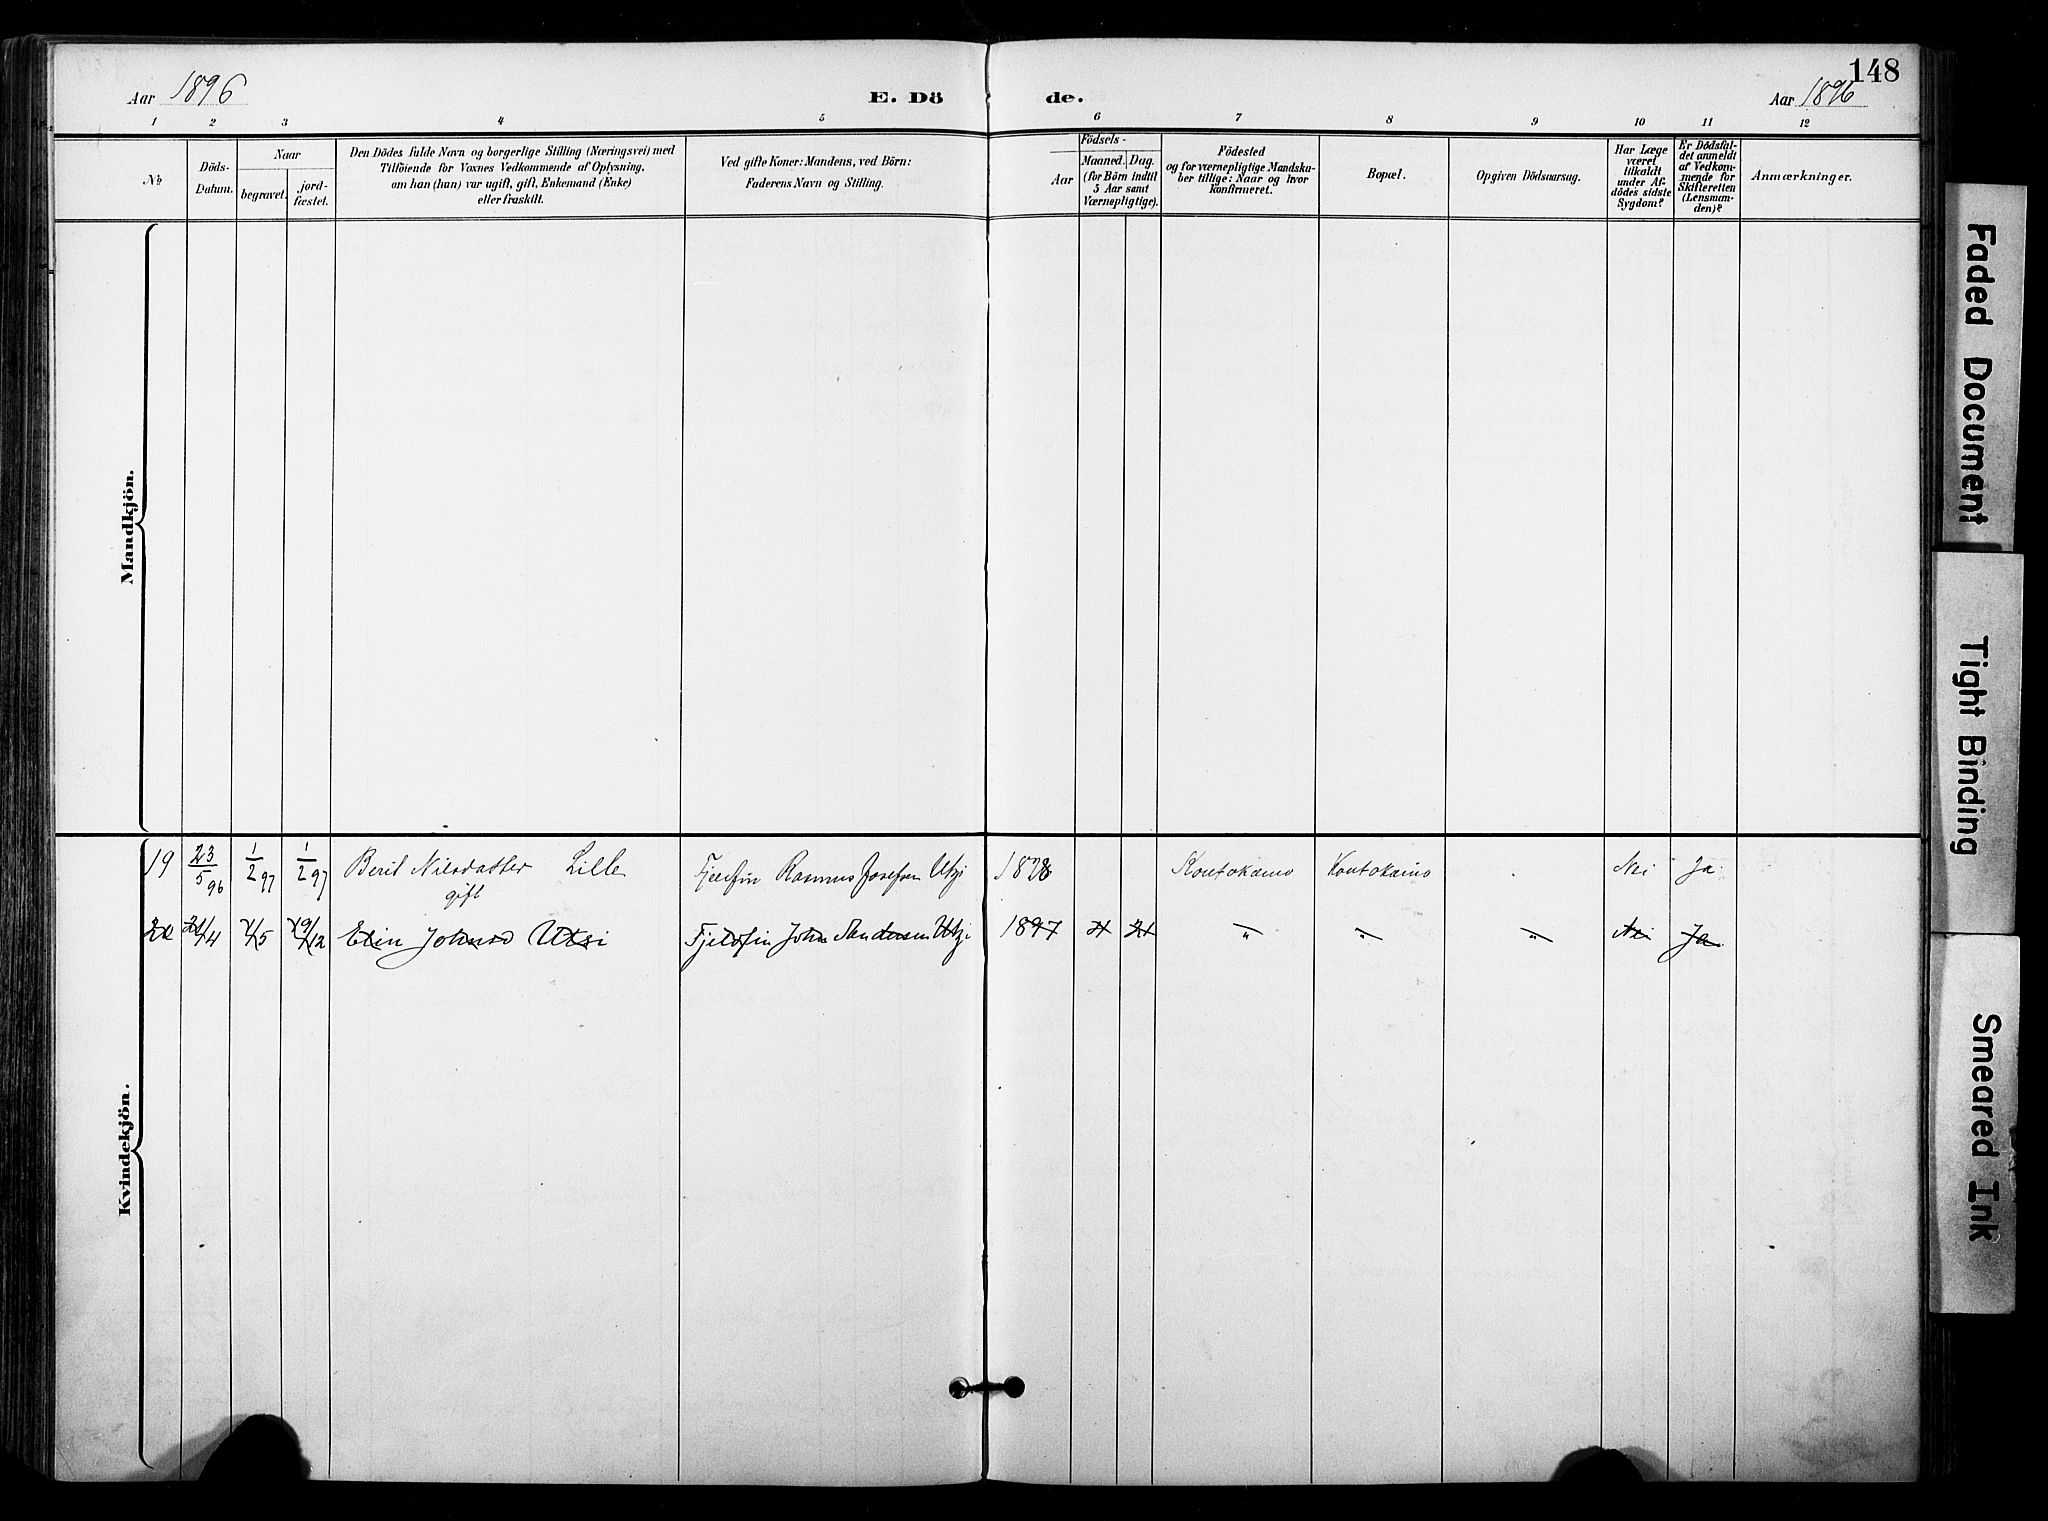 148
Aar 1896
E. Dö
de.
Aar 1896
1 2 3 4 5 6 7 8 9 10 11 12
№
Döds-
Datum.
Naar
begravet.
jord-
fæstet.
Den Dödes fulde Navn og borgerlige Stilling (Næringsvei) med
Tilföiende for Voxnes Vedkommende af Oplysning,
om han (hun) var ugift, gift, Enkemand (Enke)
eller fraskilt.
Ved gifte Koner: Mandens, ved Börn:
Faderens Navn og Stilling.
Födsels-
Aar
Maaned.
Dag.
(for Börn indtil
5 Aar samt
Værnepligtige).
Födested
og for værnepligtige Mandska-
ber tillige: Naar og hvor
Konfirmeret.
Bopæl.
Opgiven Dödsaarsag.
Har Læge
været
tilkaldt
under Af-
dödes sidste
Sygdom?
Er Dödsfal-
det anmeldt
af Vedkom-
mende for
Skifteretten
(Lensman-
den)?
Anmærkninger.
Mandkjön.
Kvindekjön.
19 23/5 96 1/2 97 1/2 97 Berit Nilsdatter Lille Fjeldfin Rasmus Josefsen Utsi 1878 Koutokæino Koutokæino Nei Ja
gift
21/4 1/5 19/12 Elin Johnsd Utsi Fjeldfin John Andersen Utsi 1897 21 " " " Nei Ja
Faded Document
Tight Binding
Smeared Ink